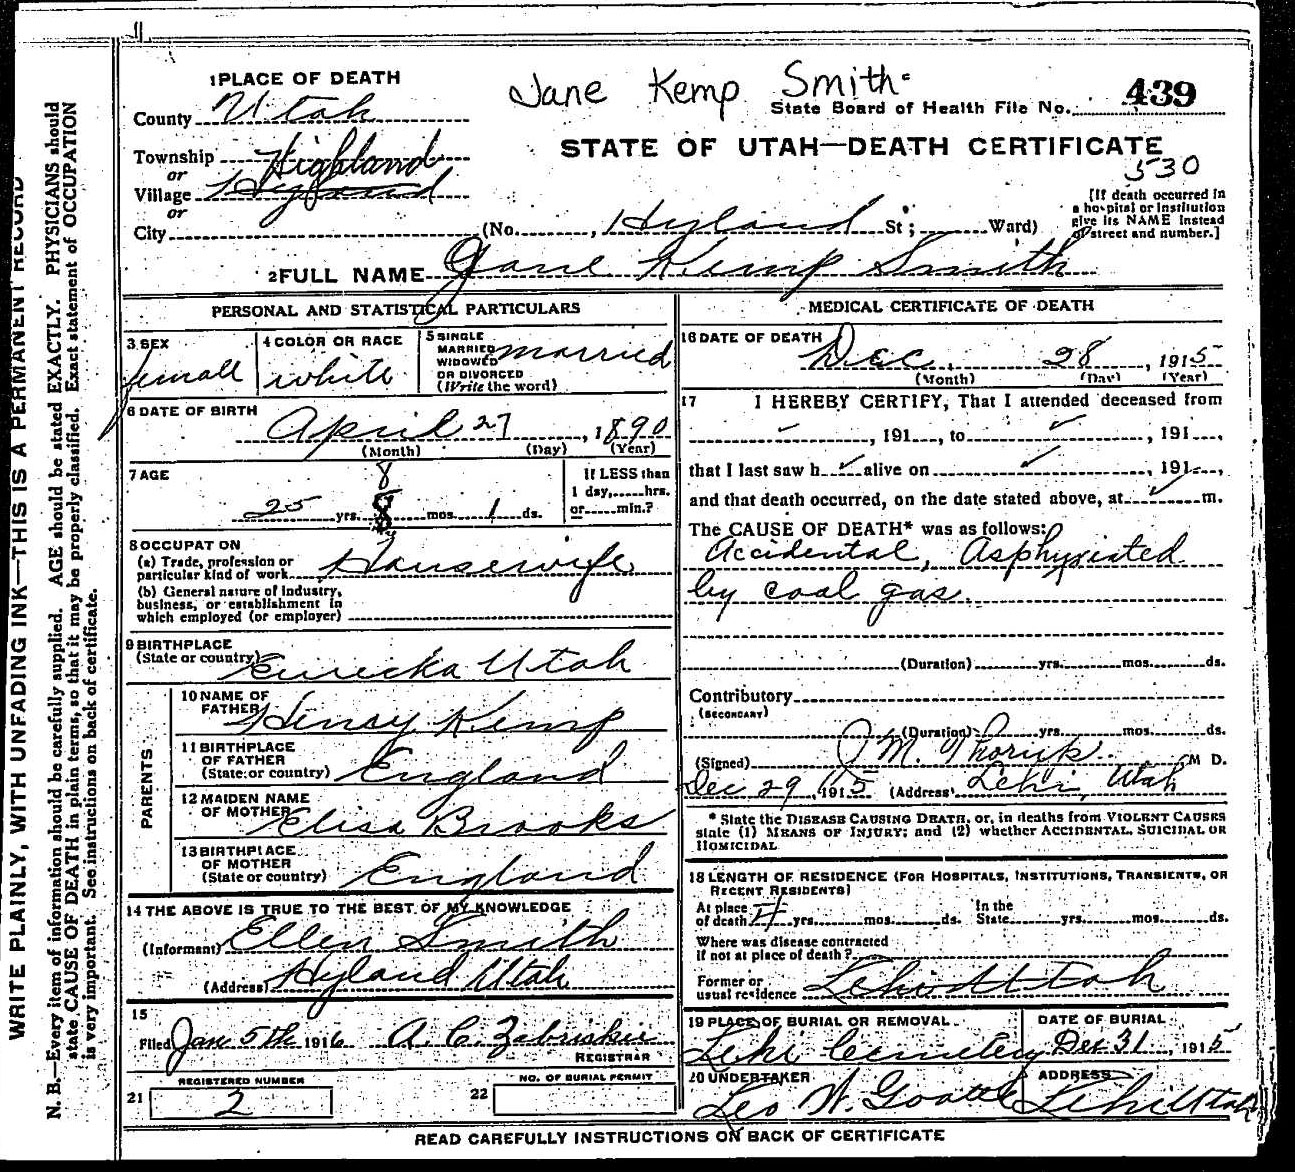 1 PLACE OF DEATH
Jane Kemp Smith
County Utah
State Board of Health File No. 439
Township Highland
STATE OF UTAH—DEATH CERTIFICATE
530
or
Village Hyland
or
City (No. , Hyland St ; Ward)
[If death occurred in
a hospital or institution
give its NAME instead
of street and number.]
2 FULL NAME Jane Kemp Smith
PERSONAL AND STATISTICAL PARTICULARS
3 SEX
femall
4 COLOR OR RACE
white
5 SINGLE
MARRIED
WIDOWED
OR DIVORCED
(Write the word)
married
6 DATE OF BIRTH
April 27, 1890
(Month) (Day) (Year)
7 AGE
8
25 yrs. 8 mos. 1 ds.
If LESS than
1 day, hrs.
or min.?
8 OCCUPAT ON
(a) Trade, profession or
particular kind of work Housewife
(b) General nature of industry,
business, or establishment in
which employed (or employer)
9 BIRTHPLACE
(State or country) Eurecka Utah
PARENTS
10 NAME OF
FATHER Henry Kemp
11 BIRTHPLACE
OF FATHER
(State or country) England
12 MAIDEN NAME
OF MOTHER Elisa Brooks
13 BIRTHPLACE
OF MOTHER
(State or country) England
14 THE ABOVE IS TRUE TO THE BEST OF MY KNOWLEDGE
(Informant) Ellen Smith
(Address) Hyland Utah
15
Filed Jan 5th 1916 A. C. Zabriskie
REGISTRAR
REGISTERED NUMBER
21 2
NO. OF BURIAL PERMIT
22
MEDICAL CERTIFICATE OF DEATH
16 DATE OF DEATH
Dec. 28, 1915
(Month) (Day) (Year)
17 I HEREBY CERTIFY, That I attended deceased from
, 191 , to , 191 ,
that I last saw h alive on , 191 ,
and that death occurred, on the date stated above, at m.
The CAUSE OF DEATH* was as follows:
Accidental, Asphyxiated
by coal gas.
(Duration) yrs. mos. ds.
Contributory
(SECONDARY)
(Duration) yrs. mos. ds.
(Signed) J. M. M D.
Dec 29, 1915 (Address) Lehi, Utah
* State the DISEASE CAUSING DEATH, or, in deaths from VIOLENT CAUSES
state (1) MEANS OF INJURY; and (2) whether ACCIDENTAL, SUICIDAL OR
HOMICIDAL
18 LENGTH OF RESIDENCE (FOR HOSPITALS, INSTITUTIONS, TRANSIENTS, OR
RECENT RESIDENTS)
At place
of death 4 yrs. mos. ds.
In the
State yrs. mos. ds.
Where was disease contracted
if not at place of death?
Former or
usual residence Lehi Utah
19 PLACE OF BURIAL OR REMOVAL
Lehi Cemetery
DATE OF BURIAL
Dec 31, 1915
20 UNDERTAKER
Leo W. Goates
ADDRESS
Lehi Utah
READ CAREFULLY INSTRUCTIONS ON BACK OF CERTIFICATE
WRITE PLAINLY, WITH UNFADING INK—THIS IS A PERMANENT RECORD
N. B.—Every item of information should be carefully supplied. AGE should be stated EXACTLY. PHYSICIANS should
state CAUSE OF DEATH in plain terms, so that it may be properly classified. Exact statement of OCCUPATION
is very important. See instructions on back of certificate.